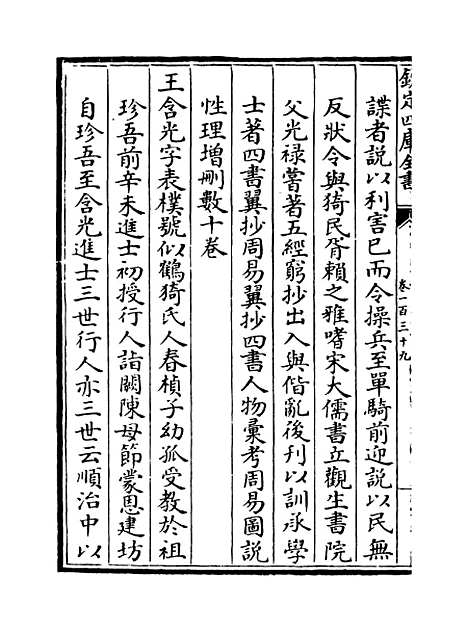 欽定四庫全書
卷一百三十九
諜者說以利害已而令操兵至單騎前迎說以民無
反狀令與猗民胥賴之雅嗜宋大儒書立觀生書院
父光祿嘗著五經窮抄出入與偕亂後刊以訓承學
士著四書翼抄周易翼抄四書人物彙考周易圖說
性理增刪數十卷
王含光字表樸號似鶴猗氏人春楨子幼孤受教於祖
珍吾前辛未進士初授行人詣闕陳母節蒙恩建坊
自珍吾至含光進士三世行人亦三世云順治中以